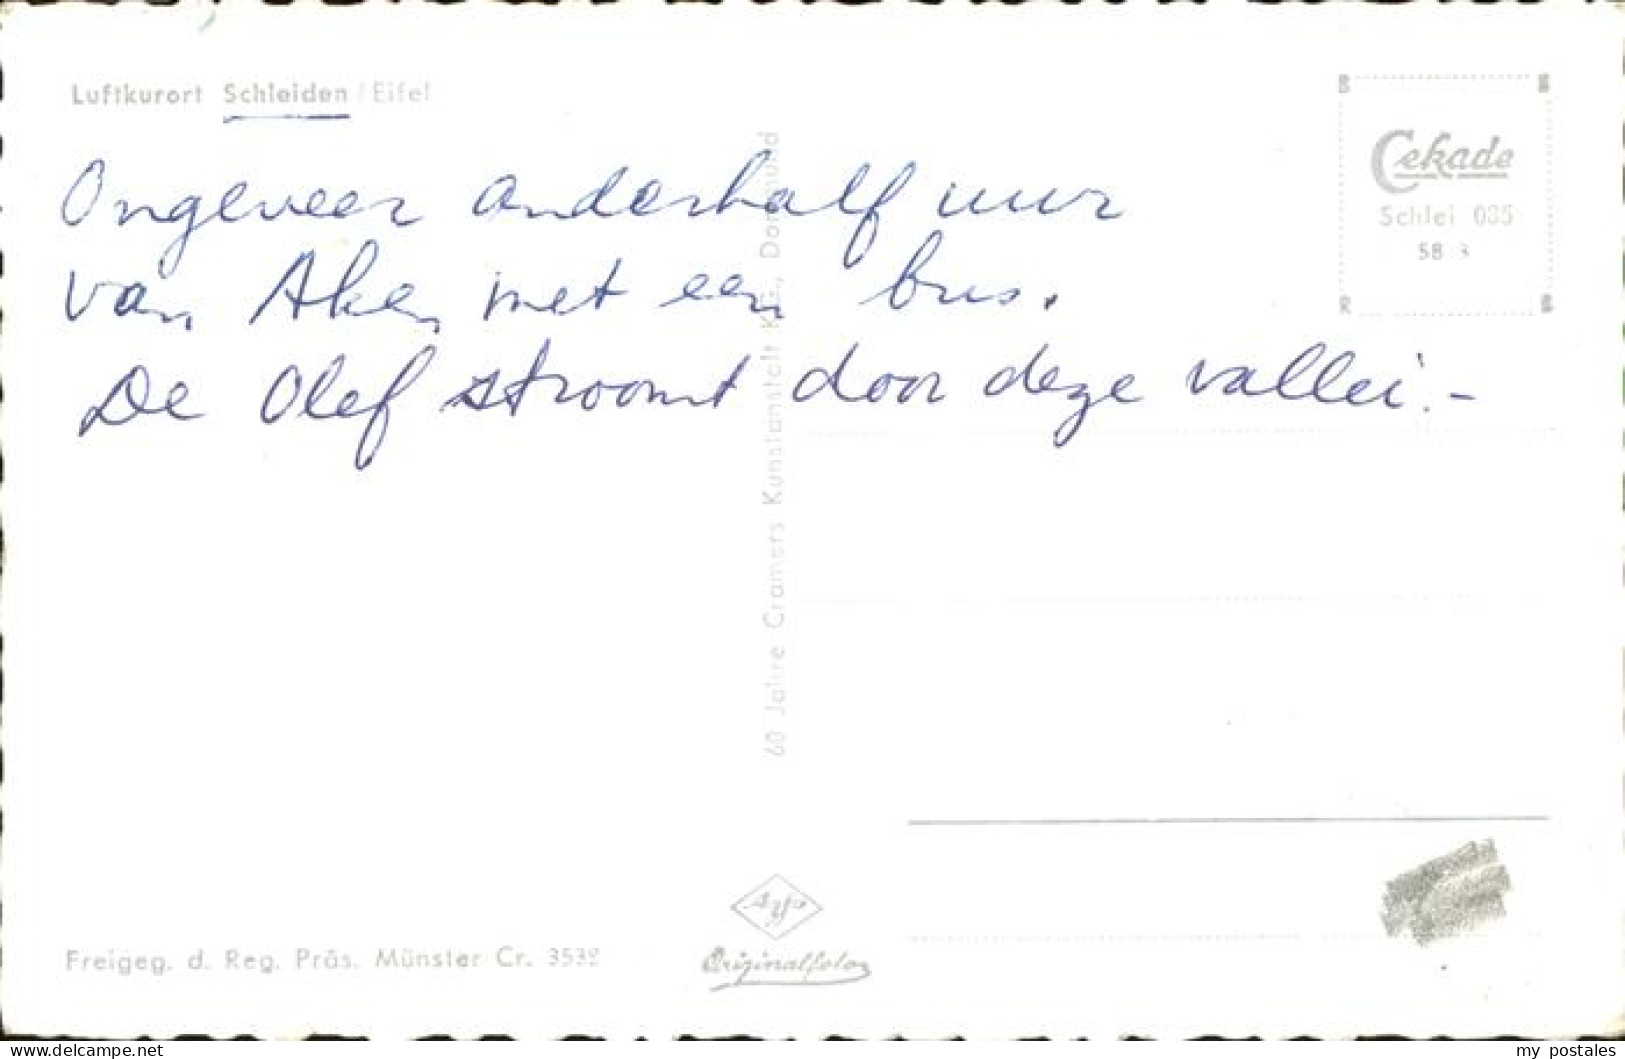 Luftkurort Schleiden / Eifel
Ongeveer anderhalf uur
van Aken met een bus.
De Olef stroomt door deze vallei. -
Cekade
Schlei 035
58 3
60 Jahre Cramers Kunstanstalt KG., Dortmund
Agfa
Originalfoto
Freigeg. d. Reg. Präs. Münster Cr. 3538
www.delcampe.net
my_postales